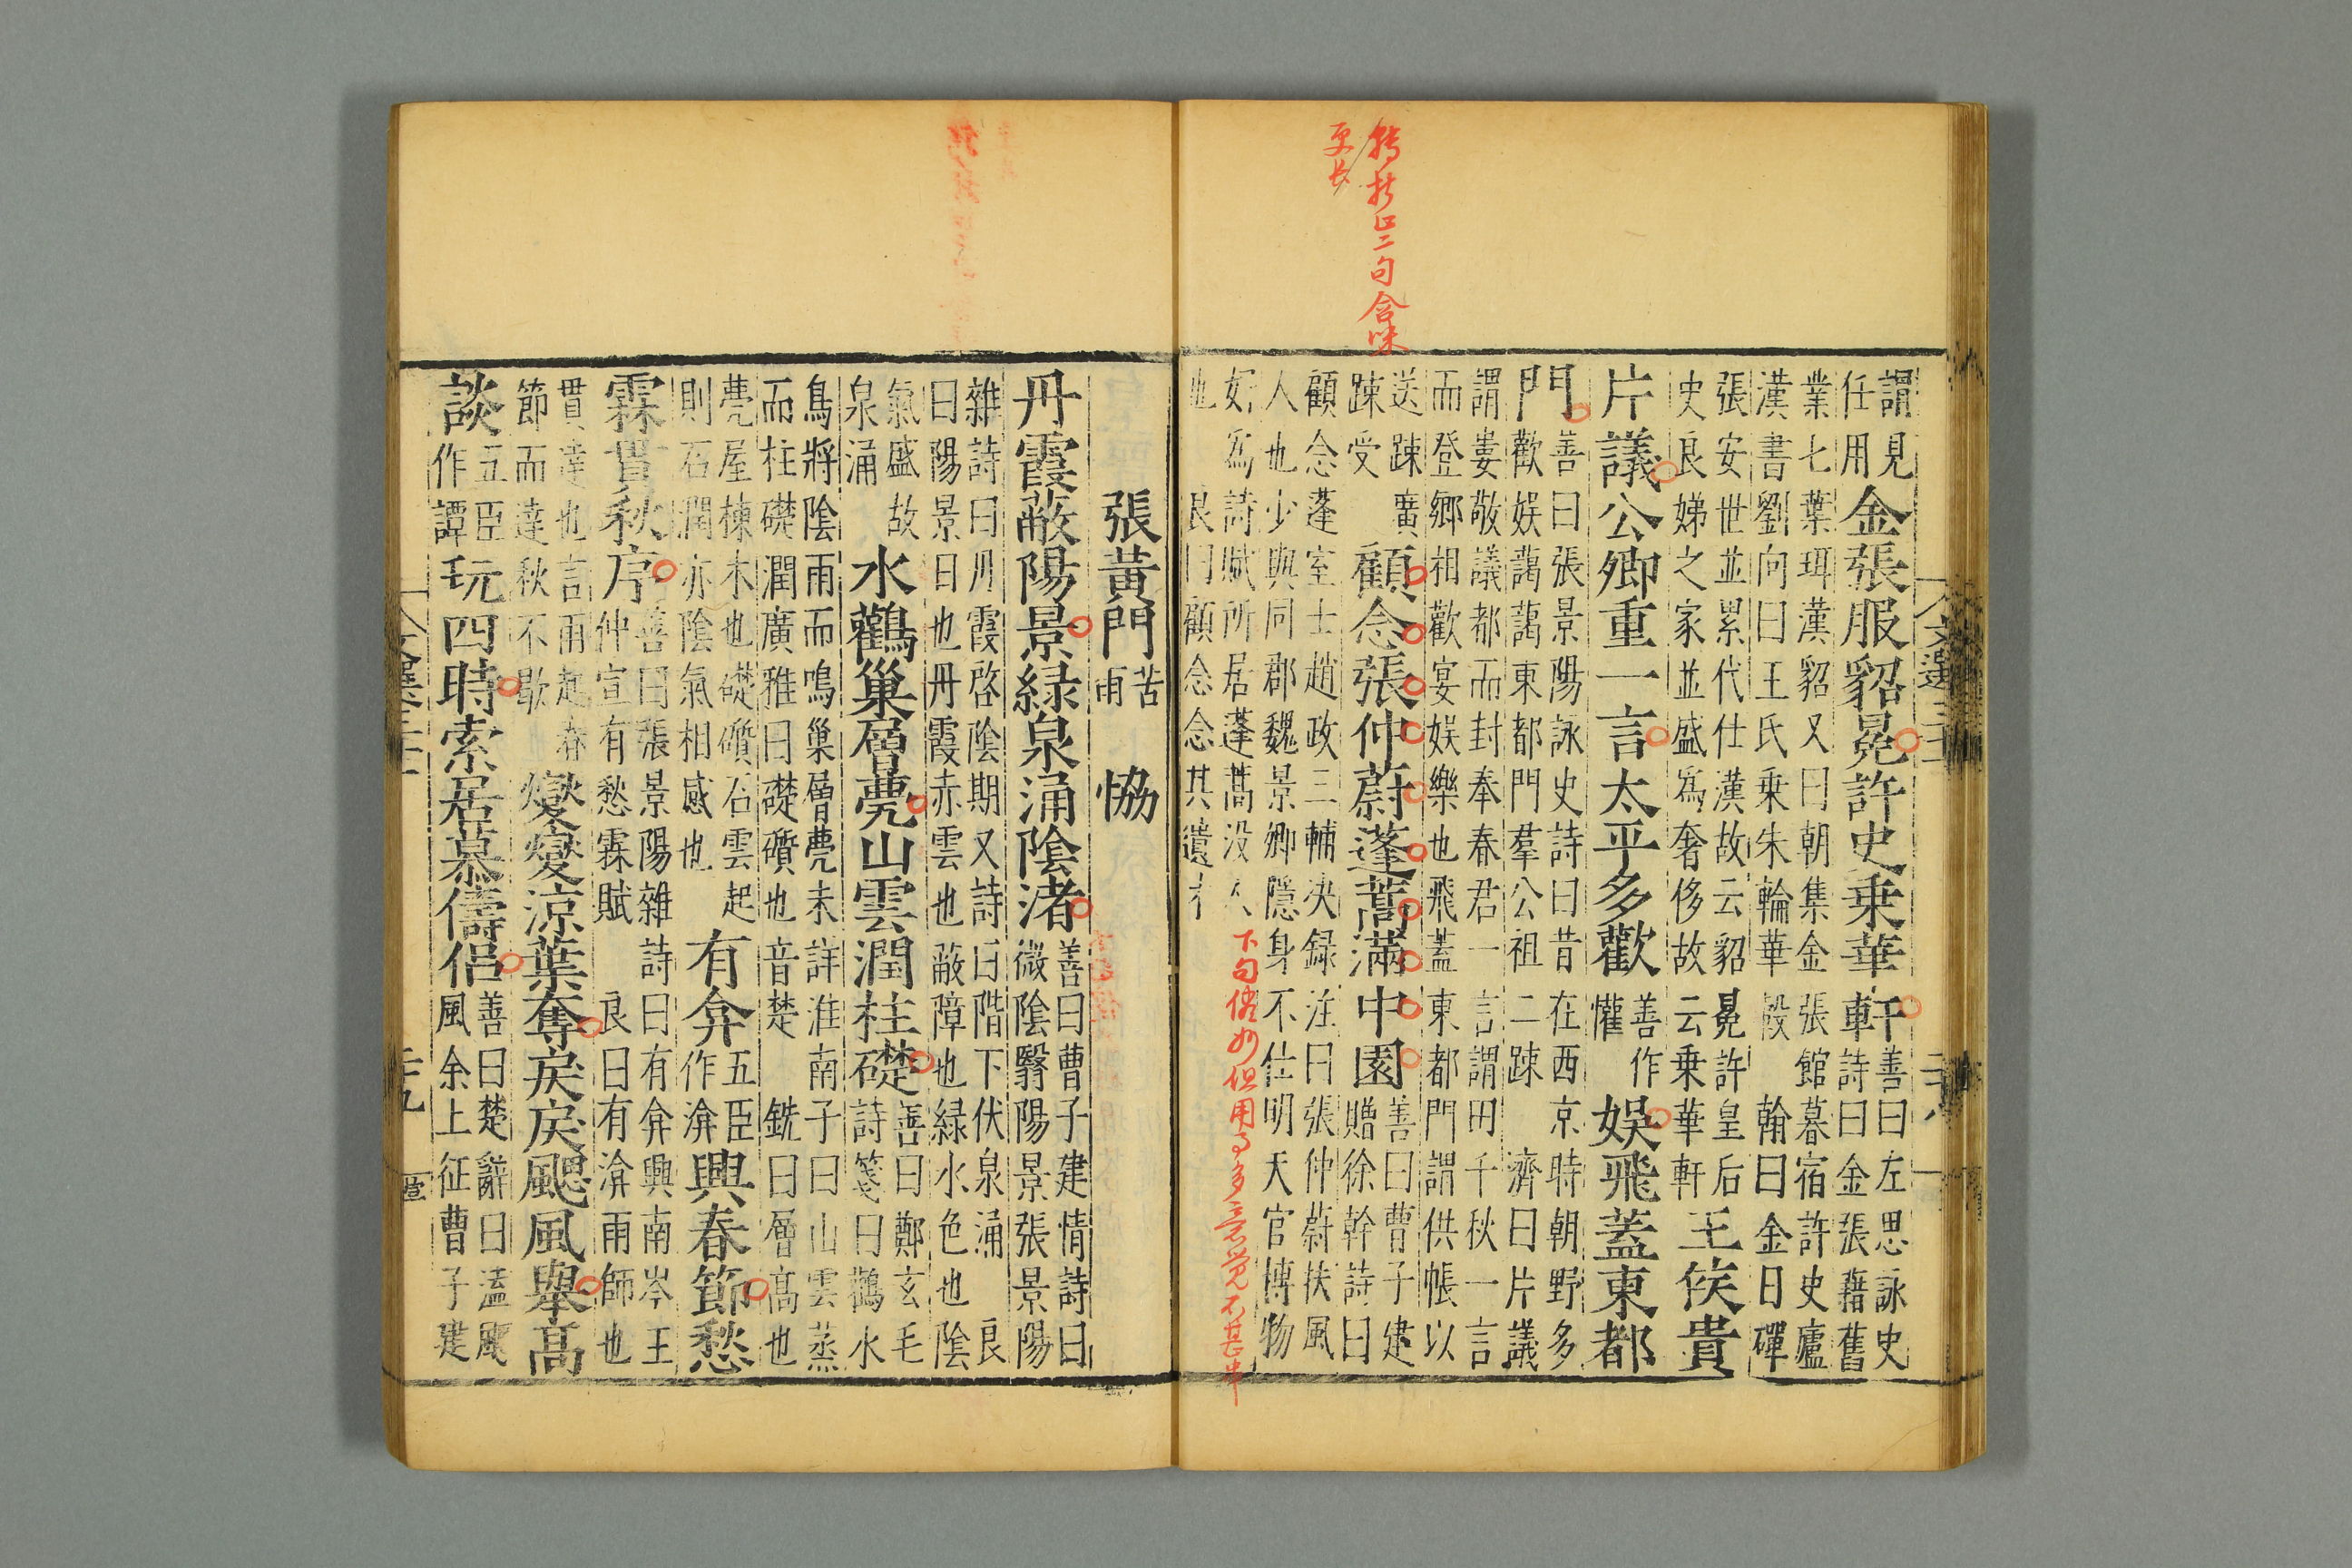 轉折㞢二句含味
更長
謂見任用金張服貂冕許史乗華軒善曰左思詠史詩曰金張藉舊
業七葉珥漢貂又曰朝集金張館暮宿許史廬漢書劉向曰王氏乗朱輪華轂翰曰金日磾
張安世並累代仕漢故云貂冕許皇后史良娣之家並盛爲奢侈故云乗華軒王侯貴
片議公卿重一言太平多歡善作懽娱飛蓋東都
門善曰張景陽詠史詩曰昔在西京時朝野多歡娱藹藹東都門羣公祖二踈濟曰片議
謂婁敬議都而封奉春君一言謂田千秋一言而登鄉相歡宴娱樂也飛蓋東都門謂供帳以
送踈廣踈受顧念張仲蔚蓬蒿滿中園善曰曹子建贈徐幹詩曰
顧念蓬室士趙政三輔决録注曰張仲蔚扶風人也少與同郡魏景卿隱身不仕明天官博物
好爲詩賦所居蓬蒿没人也良曰顧念念其遺才
下句儘妙但用多意覺不甚
張黄門苦雨 協
丹霞蔽陽景緑泉涌陰渚善曰曹子建情詩曰微陰翳陽景張景陽
雜詩曰丹霞啓陰期又詩曰階下伏泉涌良曰陽景日也丹霞赤雲也蔽障也緑水色也陰
氣盛故泉涌水鸛巢層甍山雲潤柱礎善曰鄭玄毛詩箋曰鸛水
鳥將陰雨而鳴巢層甍未詳淮南子曰山雲蒸而柱礎潤廣雅曰礎礩也音楚銑曰層高也
甍屋棟木也礎礩石雲起則石潤亦陰氣相感也有弇五臣作渰興春節愁
霖貫秋序善曰張景陽雜詩曰有弇興南岑王仲宣有愁霖賦良曰有渰雨師也
貫達也言雨起春節而達秋不歇燮燮涼葉奪戾戾颸風舉高
談五臣作譚玩四時索居慕儔侣善曰楚辭曰溘颸風余上征曹子建
文選三十一
二十九